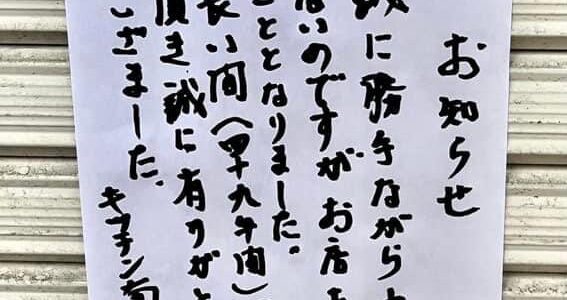 お知らせ
誠に勝手ながら
ないのですがお店を
こととなりました。
長い間（四十九年間）
頂き誠に有りがと
ざいました。
キッチン